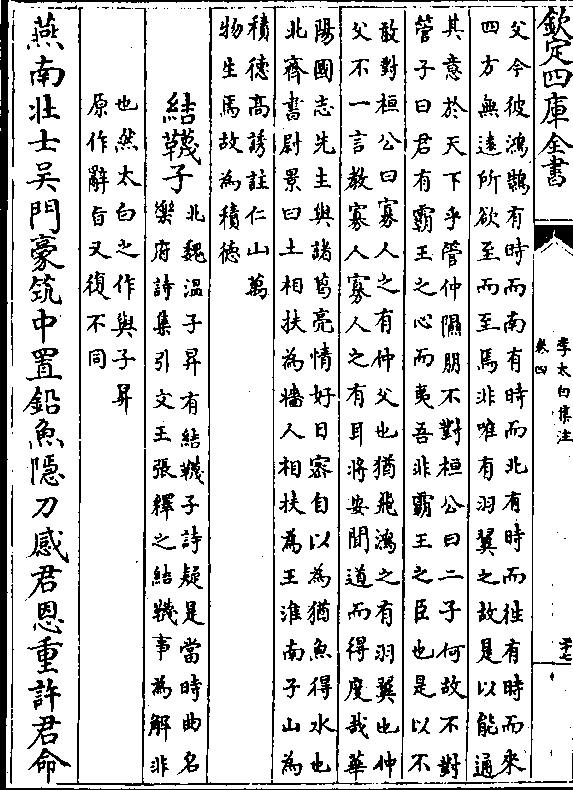 欽定四庫全書
李太白集注
卷四
父今彼鴻鵠有時而南有時而北有時而往有時而來
四方無遠所欲至而至焉非唯有羽翼之故是以能通
其意於天下乎管仲隰朋不對桓公曰二子何故不對
管子曰君有霸王之心而夷吾非霸王之臣也是以不
敢對桓公曰寡人之有仲父也猶飛鴻之有羽翼也仲
父不一言教寡人寡人之有耳將安聞道而得度哉華
陽國志先主與諸葛亮情好日密自以為猶魚得水也
北齊書尉景曰土相扶為墻人相扶為王淮南子山為
積德高誘註仁山萬
物生焉故為積德
結韈子
北魏溫子昇有結韈子詩疑是當時曲名
樂府詩集引文王張釋之結韈事為解非
也然太白之作與子昇
原作辭旨又復不同
燕南壯士吳門豪筑中置鉛魚隱刀感君恩重許君命